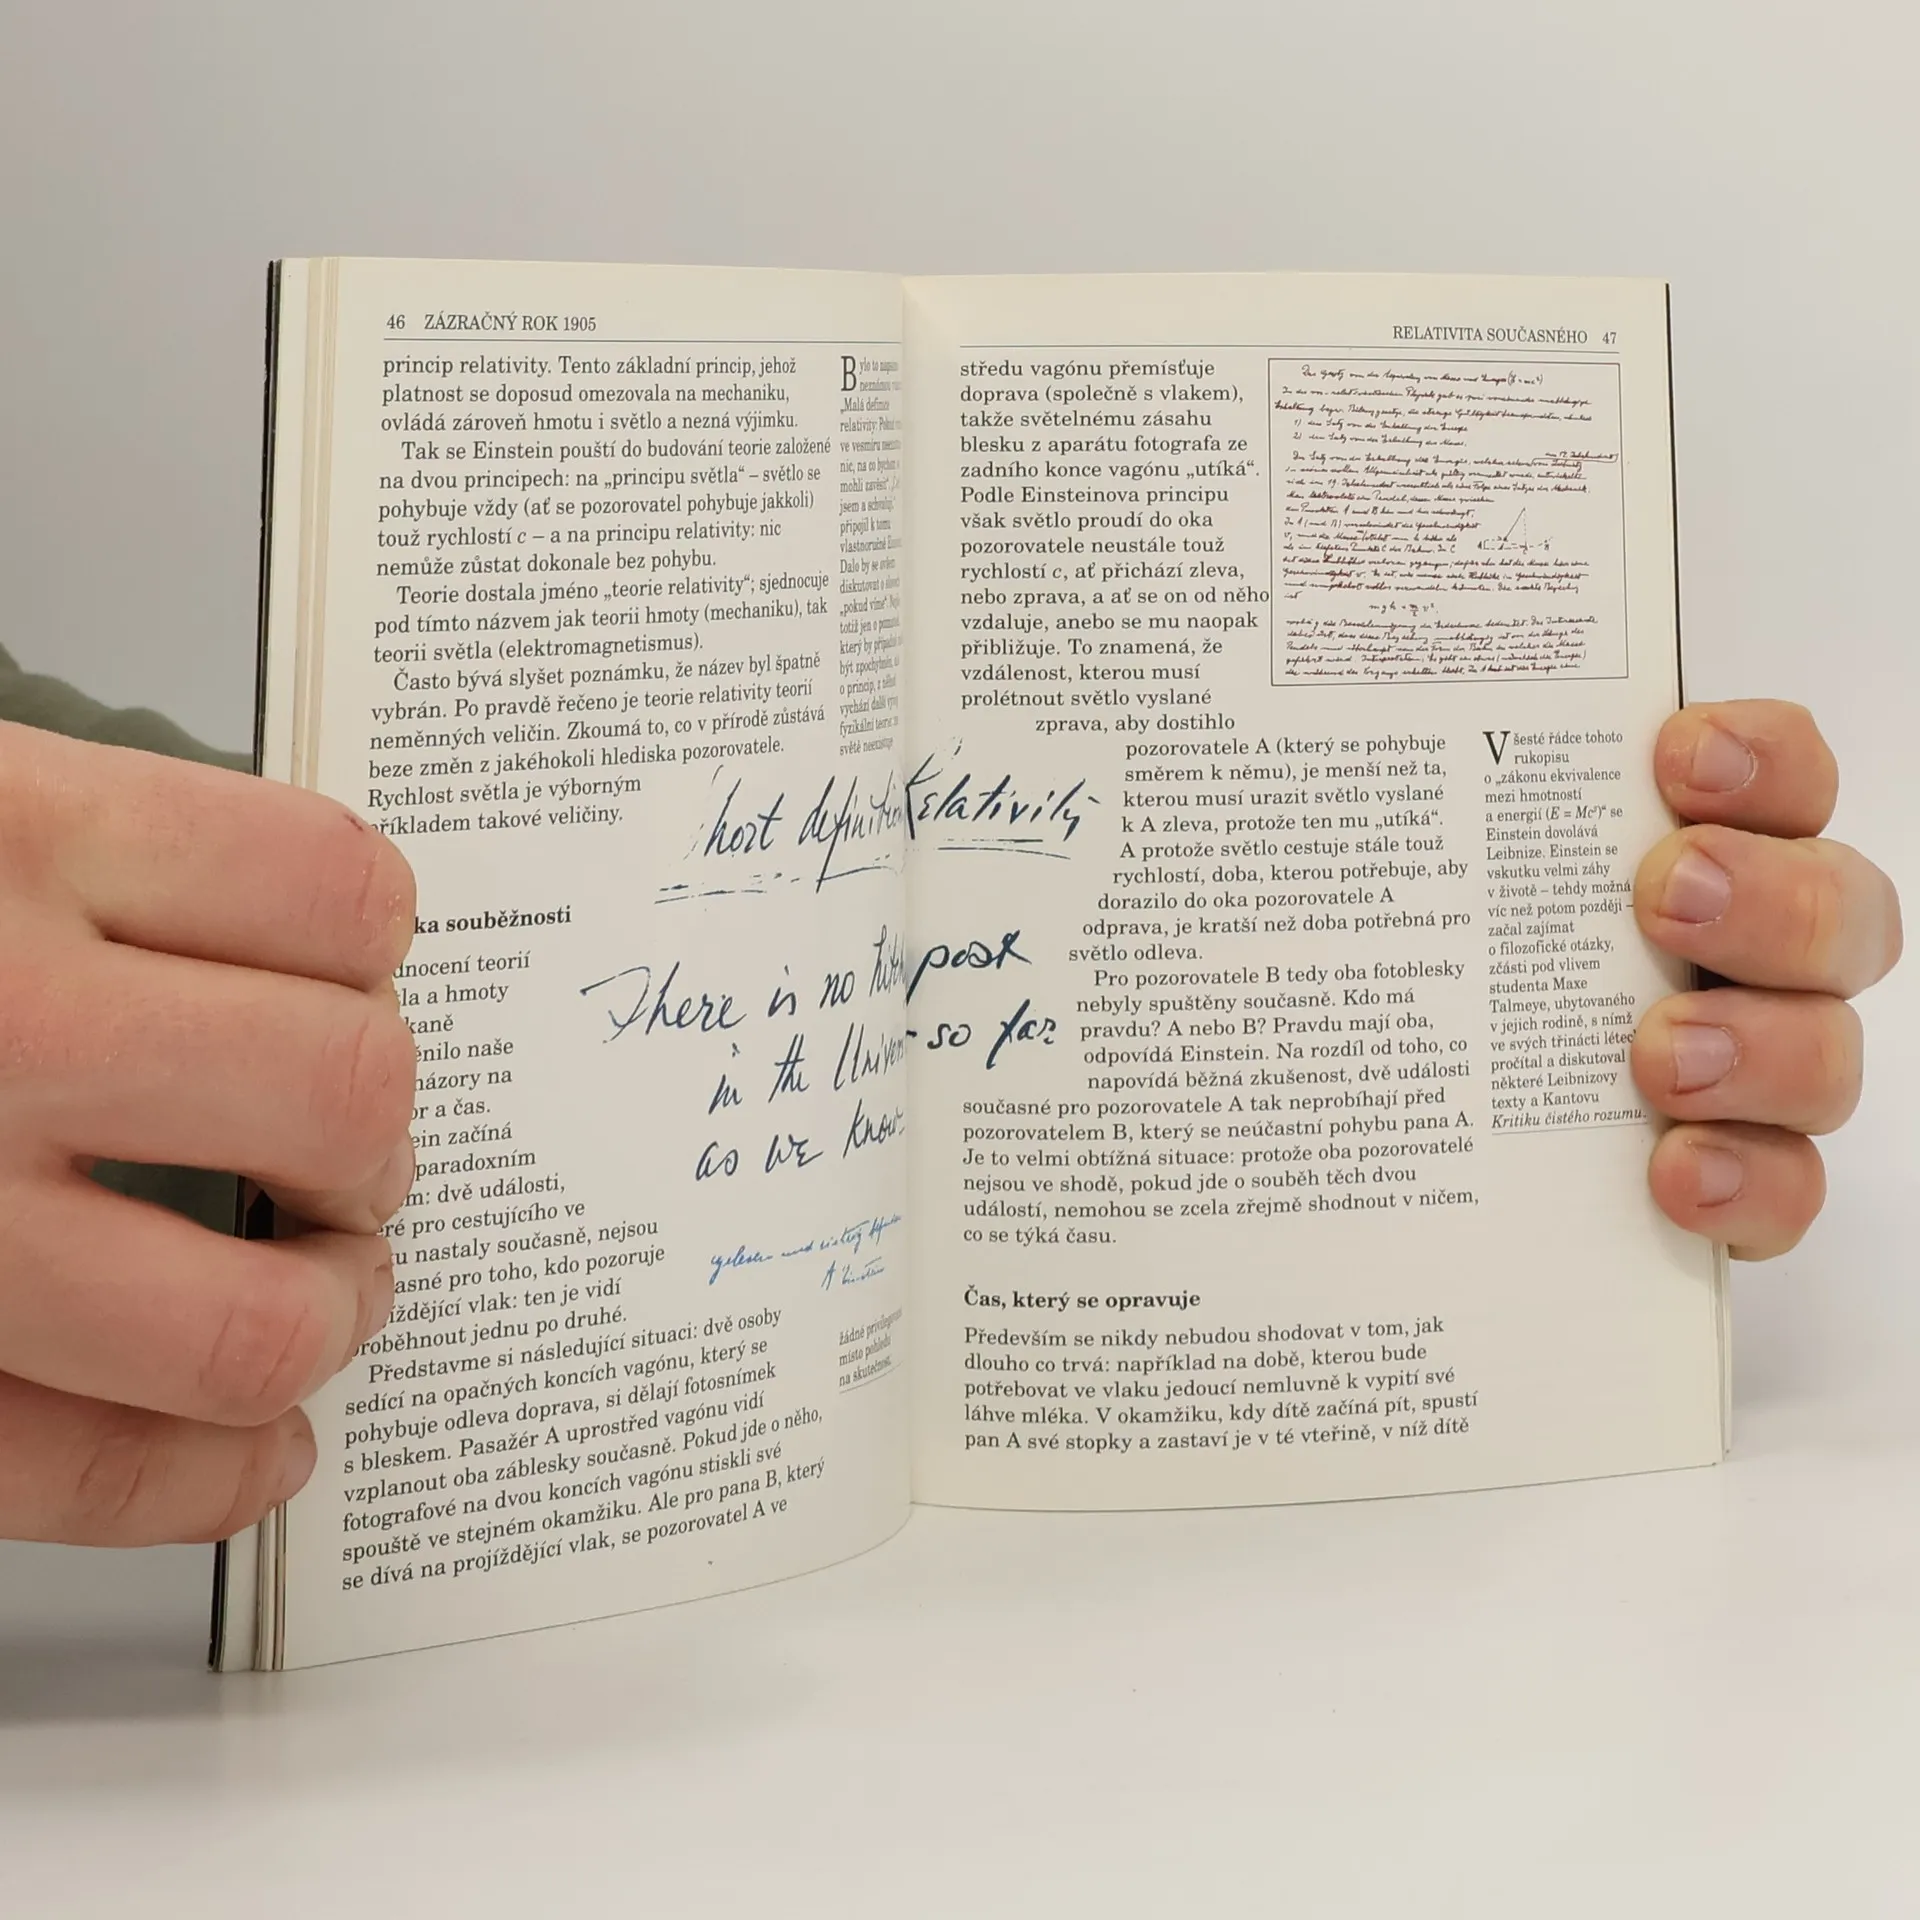 46 ZÁZRAČNÝ ROK 1905
princip relativity. Tento základní princip, jehož
platnost se doposud omezovala na mechaniku,
ovládá zároveň hmotu i světlo a nezná výjimku.
Tak se Einstein pouští do budování teorie založené
na dvou principech: na „principu světla“ – světlo se
pohybuje vždy (ať se pozorovatel pohybuje jakkoli)
touž rychlostí c – a na principu relativity: nic
nemůže zůstat dokonale bez pohybu.
Teorie dostala jméno „teorie relativity“; sjednocuje
pod tímto názvem jak teorii hmoty (mechaniku), tak
teorii světla (elektromagnetismus).
Často bývá slyšet poznámku, že název byl špatně
vybrán. Po pravdě řečeno je teorie relativity teorií
neměnných veličin. Zkoumá to, co v přírodě zůstává
beze změn z jakéhokoli hlediska pozorovatele.
Rychlost světla je výborným
příkladem takové veličiny.
ka souběžnosti
dnocení teorií
la a hmoty
kaně
ěnilo naše
názory na
or a čas.
ein začíná
paradoxním
m: dvě události,
eré pro cestujícího ve
u nastaly současně, nejsou
asné pro toho, kdo pozoruje
íždějící vlak: ten je vidí
proběhnout jednu po druhé.
Představme si následující situaci: dvě osoby
sedící na opačných koncích vagónu, který se
pohybuje odleva doprava, si dělají fotosnímek
s bleskem. Pasažér A uprostřed vagónu vidí
vzplanout oba záblesky současně. Pokud jde o něho,
fotografové na dvou koncích vagónu stiskli své
spouště ve stejném okamžiku. Ale pro pana B, který
se dívá na projíždějící vlak, se pozorovatel A ve
Bylo to
„Malá definice
relativity:
ve vesmíru
nic, na co bychom
mohli zavěsit“.
jsem a schvaluji,
připojil k tomu
vlastnoručně
Dalo by se ovšem
diskutovat o
„pokud víme“.
totiž jen o
který by případně
být zpochybněn,
o princip, z něhož
vychází další
fyzikální teorie:
světě neexistuje
žádné privilegované
místo pohledu
na skutečnost.
hort definition Relativity
There is no hitch post
in the Univers so far
as we know
gelesen und richtig
A Einstein
RELATIVITA SOUČASNÉHO 47
středu vagónu přemísťuje
doprava (společně s vlakem),
takže světelnému zásahu
blesku z aparátu fotografa ze
zadního konce vagónu „utíká“.
Podle Einsteinova principu
však světlo proudí do oka
pozorovatele neustále touž
rychlostí c, ať přichází zleva,
nebo zprava, a ať se on od něho
vzdaluje, anebo se mu naopak
přibližuje. To znamená, že
vzdálenost, kterou musí
prolétnout světlo vyslané
zprava, aby dostihlo
pozorovatele A (který se pohybuje
směrem k němu), je menší než ta,
kterou musí urazit světlo vyslané
k A zleva, protože ten mu „utíká“.
A protože světlo cestuje stále touž
rychlostí, doba, kterou potřebuje, aby
dorazilo do oka pozorovatele A
odprava, je kratší než doba potřebná pro
světlo odleva.
Pro pozorovatele B tedy oba fotoblesky
nebyly spuštěny současně. Kdo má
pravdu? A nebo B? Pravdu mají oba,
odpovídá Einstein. Na rozdíl od toho, co
napovídá běžná zkušenost, dvě události
současné pro pozorovatele A tak neprobíhají před
pozorovatelem B, který se neúčastní pohybu pana A.
Je to velmi obtížná situace: protože oba pozorovatelé
nejsou ve shodě, pokud jde o souběh těch dvou
událostí, nemohou se zcela zřejmě shodnout v ničem,
co se týká času.
Čas, který se opravuje
Především se nikdy nebudou shodovat v tom, jak
dlouho co trvá: například na době, kterou bude
potřebovat ve vlaku jedoucí nemluvně k vypití své
láhve mléka. V okamžiku, kdy dítě začíná pít, spustí
pan A své stopky a zastaví je v té vteřině, v níž dítě
V šesté řádce tohoto
rukopisu
o „zákonu ekvivalence
mezi hmotností
a energií (E = Mc²)“ se
Einstein dovolává
Leibnize. Einstein se
vskutku velmi záhy
v životě – tehdy možná
víc než potom později –
začal zajímat
o filozofické otázky,
zčásti pod vlivem
studenta Maxe
Talmeye, ubytovaného
v jejich rodině, s nímž
ve svých třinácti létech
pročítal a diskutoval
některé Leibnizovy
texty a Kantovu
Kritiku čistého rozumu.